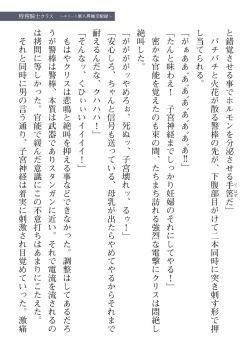 クリス
と錯覚させる事でホルモンを分泌させる手筈だ」
バチバチと火花が散る警棒の先が、下腹部目がけて二本同時に突き刺す形で押
し当てられる。
「があぁあぁあぁあぁあぁあぁぁ!!」
「たんと味わえ！　子宮神経までしっかり妊婦のそれにしてやる！」
密かな官能を覚えたのも間の事。たちまち訪れる強烈な電撃にクリスは悶絶し
絶叫した。
「がががががッやめろぉ、死ぬッ、子宮壊れッ、るぅ！」
「安心しろ、ちゃんと信号も送っている、母乳が出たらやめてやるからそれまで
耐えるんだな、クハハハ！」
「そんなっ、くひぃいいイイイイ！」
もはやクリスは悲鳴と絶叫を抑える事などできなかった。調整はしてあるだろ
うが警棒は警棒、本質は武器でありスタンガンに近い。それで電流を流されるの
は拷問に等しかった。官能で緩んだ意識にこの不意打ちはあまりにこたえた。
それと同時に男の言う通り、子宮神経は着実に刺激され目覚めていった。激痛